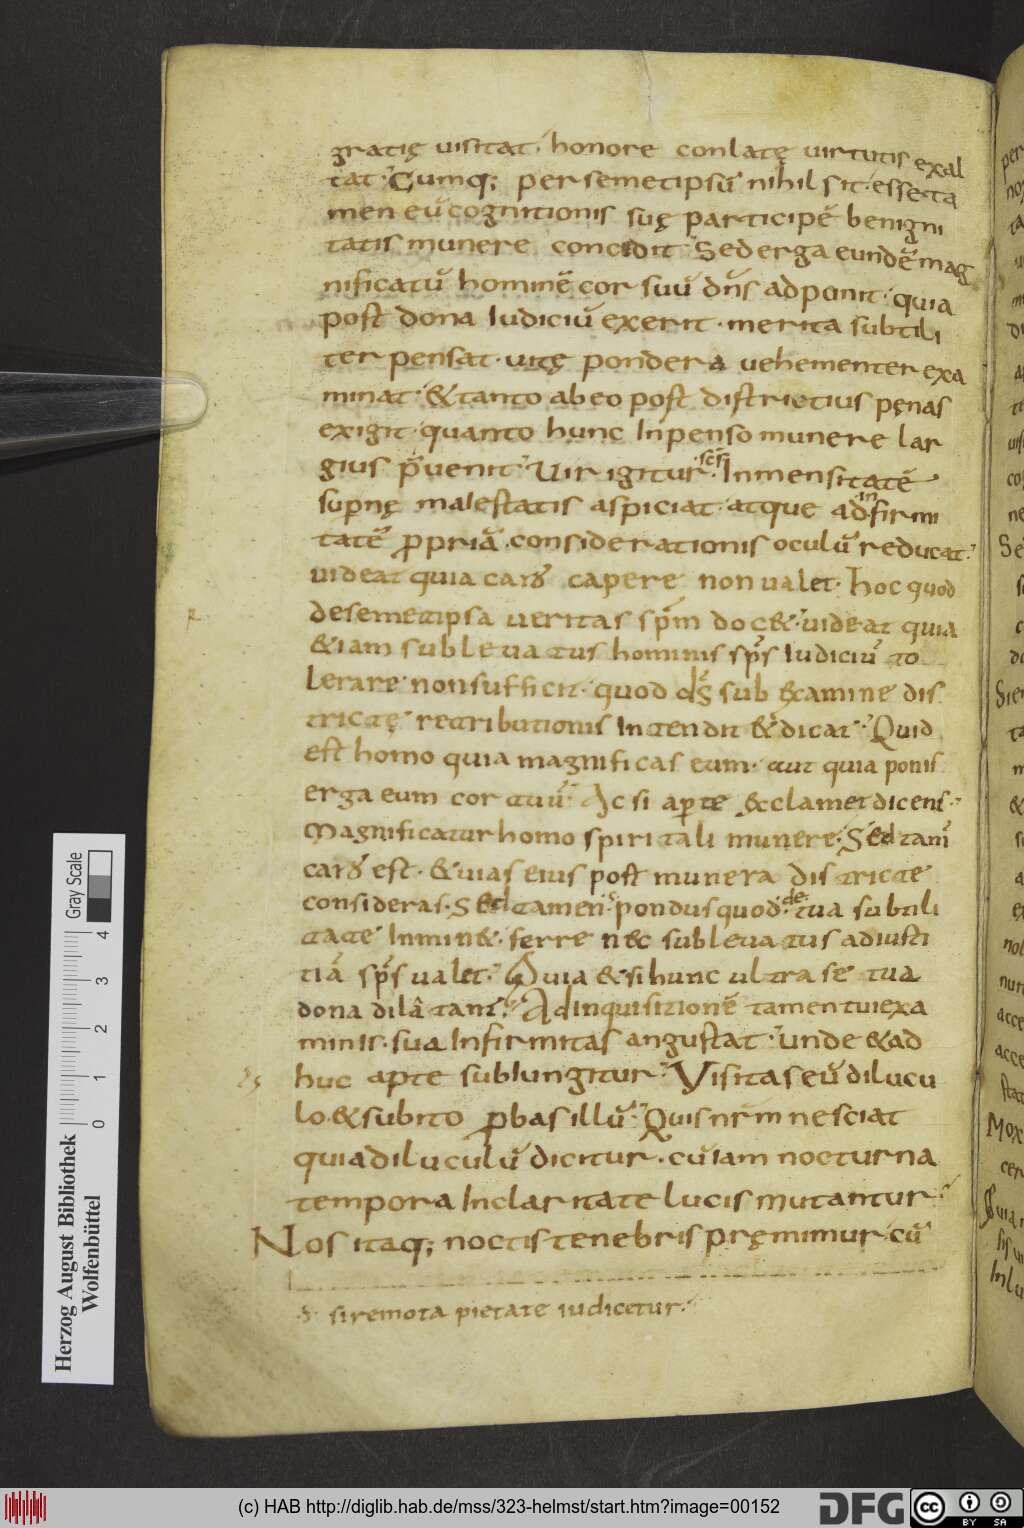 gratię uisitat. honore conlatę uirtutis exal
tat. Cumq; per semetipsū nihil sit. esse ta
men eū cognitionis suę participē benigni
tatis munere concidit. Sed erga eundē mag
nificatū hominē cor suū dn̄s adponit. quia
post dona Iudiciū exerit. merita subtili
ter pensat. uitę pondera uehementer exa
minat. & tanto ab eo post districtius pęnas
exigit. quanto hunc Inpenso munere lar
gius p̄uenit. Uir igitur scs̄ Inmensitatē
supnę maiestatis aspiciat. atque ad infirmi
tatē ꝓpriā. considerationis oculū reducat.
uideat quia caro capere non ualet. hoc quod
desemetipsa ueritas sp̄m doc&. uideat quia
&iam subleuatus hominis sp̄s Iudiciū to
lerare non sufficit. quod ds̄ sub examine dis
trictę retributionis Intendit & dicat. Quid
est homo quia magnificas eum. aut quia ponis
erga eum cor tuū. Ac si apte exclamet dicens.
Magnificatur homo spiritali munere. Sed tam̄
caro est. & uias eius post munera districte
consideras. Sed tamen pondus quod de tua subtili
tate Inmin&. ferre nec subleuatus ad iusti
tiā sp̄s ualet. Quia & si hunc ultra se tua
dona dilatant. Ad inquisitionē tamen tui exa
minis. sua Infirmitas angustat. unde & ad
huc apte subIungitur. Visitas eū dilucu
lo & subito ꝓbas illū. Quis nr̄m nesciat
quia diluculū dicitur. cū iam nocturna
tempora In claritate lucis mutantur.
Nos itaq; noctis tenebris pręmimur. cū
si remota pietate iudicetur.
Herzog August Bibliothek
Wolfenbüttel
0 1 2 3 4
Gray Scale
(c) HAB http://diglib.hab.de/mss/323-helmst/start.htm?image=00152
DFG
cc BY SA